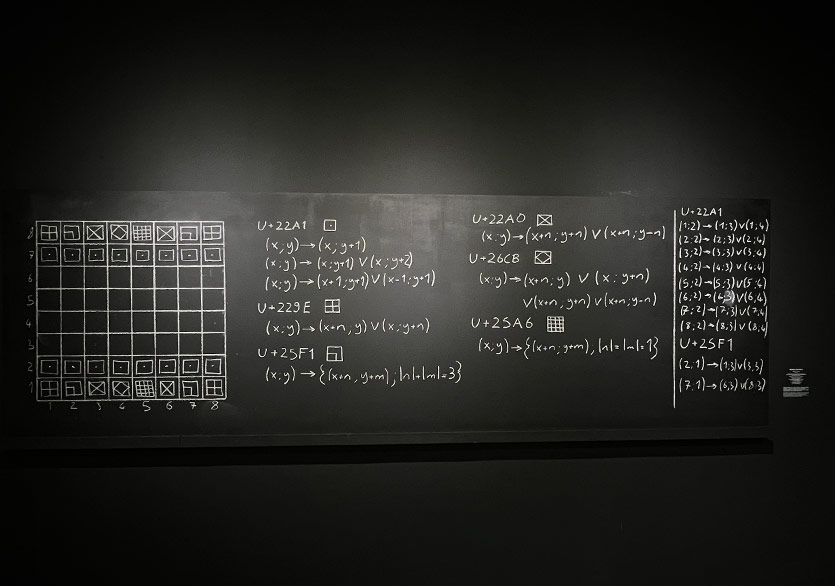 8
7
6
5
4
3
2
1
1 2 3 4 5 6 7 8
U+22A1
(x;y)→(x;y+1)
(x;y)→(x;y+1)∨(x;y+2)
(x;y)→(x+1;y+1)∨(x-1;y+1)
U+229E
(x;y)→(x+n;y)∨(x;y+n)
U+25F1
(x;y)→{(x+n,y+m);|n|+|m|=3}
U+22A0
(x;y)→(x+n;y+n)∨(x+n;y-n)
U+26CB
(x;y)→(x+n;y)∨(x;y+n)
∨(x+n;y+n)∨(x+n;y-n)
U+25A6
(x;y)→{(x+n;y+m),|n|=|m|=1}
U+22A1
(1;2)→(1;3)∨(1;4)
(2;2)→(2;3)∨(2;4)
(3;2)→(3;3)∨(3;4)
(4;2)→(4;3)∨(4;4)
(5;2)→(5;3)∨(5;4)
(6;2)→(6;3)∨(6,4)
(7;2)→(7;3)∨(7,4)
(8,2)→(8,3)∨(8,4)
U+25F1
(2,1)→(1;3)∨(3,3)
(7,1)→(6,3)∨(8;3)